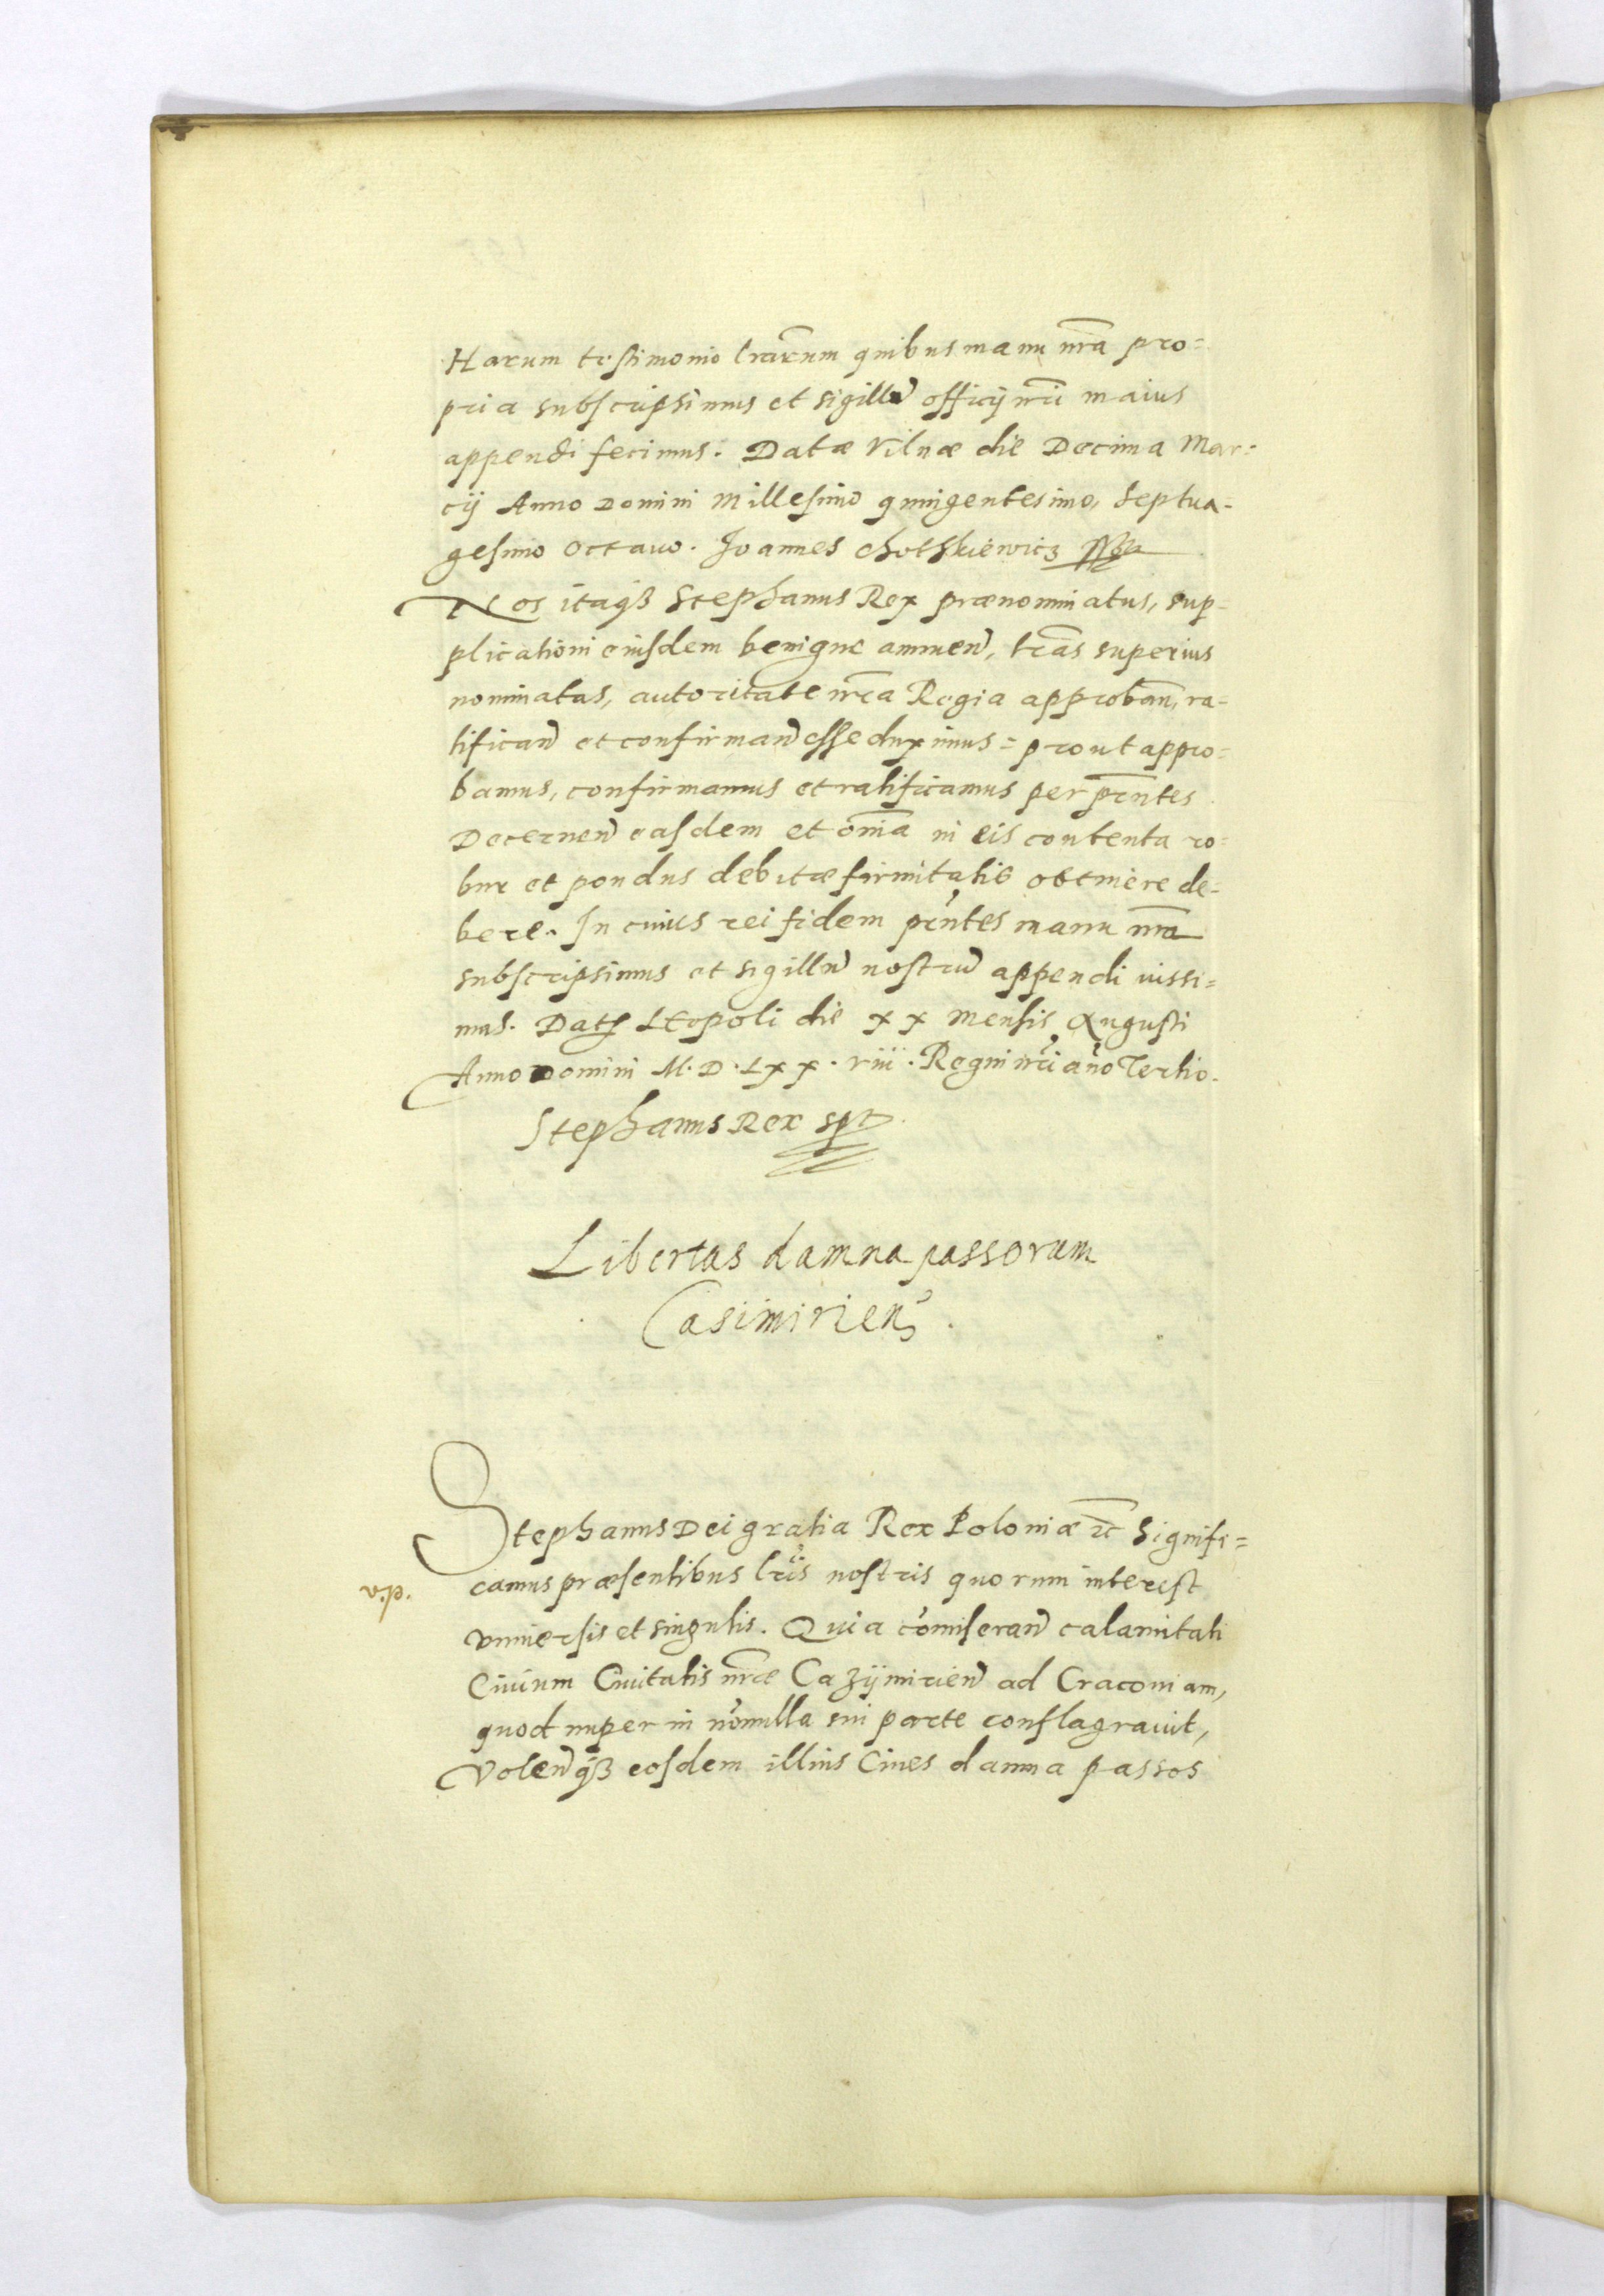 Harum testimonio lrarum quibus manu nra pro=
pria subscripsimus et sigillũ officij nri maius
appendi fecimus. Datæ Vilnæ die Decima Mar=
cij Anno Domini Millesimo quingentesimo, Septua=
gesimo Octauo. Joannes Chotskiewicz
Nos itaqȝ Stephanus Rex prænominatus, sup=
plicationi eiusdem benigne annuen̄, lrãs superius
nominatas, autoritate nr̃a Regia approban̄, ra=
tifican̄ et confirman̄ esse duximus = prout appro=
bamus, confirmamus et ratificamus per pr̃ntes
Decernen̄ easdem et om̃ia in eis contenta ro=
bur et pondus debitæ firmitatis obtinere de=
bere. In cuius rei fidem pr̃ntes manu nr̃a
subscripsimus et sigillũ nostrũ appendi iussi=
mus. Datꝭ Leopoli die xx Mensis Augusti
Anno Domini M.D.Lxx.viii. Regni nr̃i año Tertio.
Stephanus Rex sp̃t
Libertas damna passorum
Casimirien̄.
Stephanus Dei gratia Rex Poloniæ ꝛc Signifi=
camus præsentibus lr̃is nostris quorum interest
v.p.
vniuersis et singulis. Quia com̃iseran̄ calamitati
Ciuium Ciuitatis nr̃æ Cazijmirien̄ ad Cracouiam,
quod nuper in non̄ulla sui parte conflagrauit,
Volen̄qȝ eosdem illius Ciues damna passos